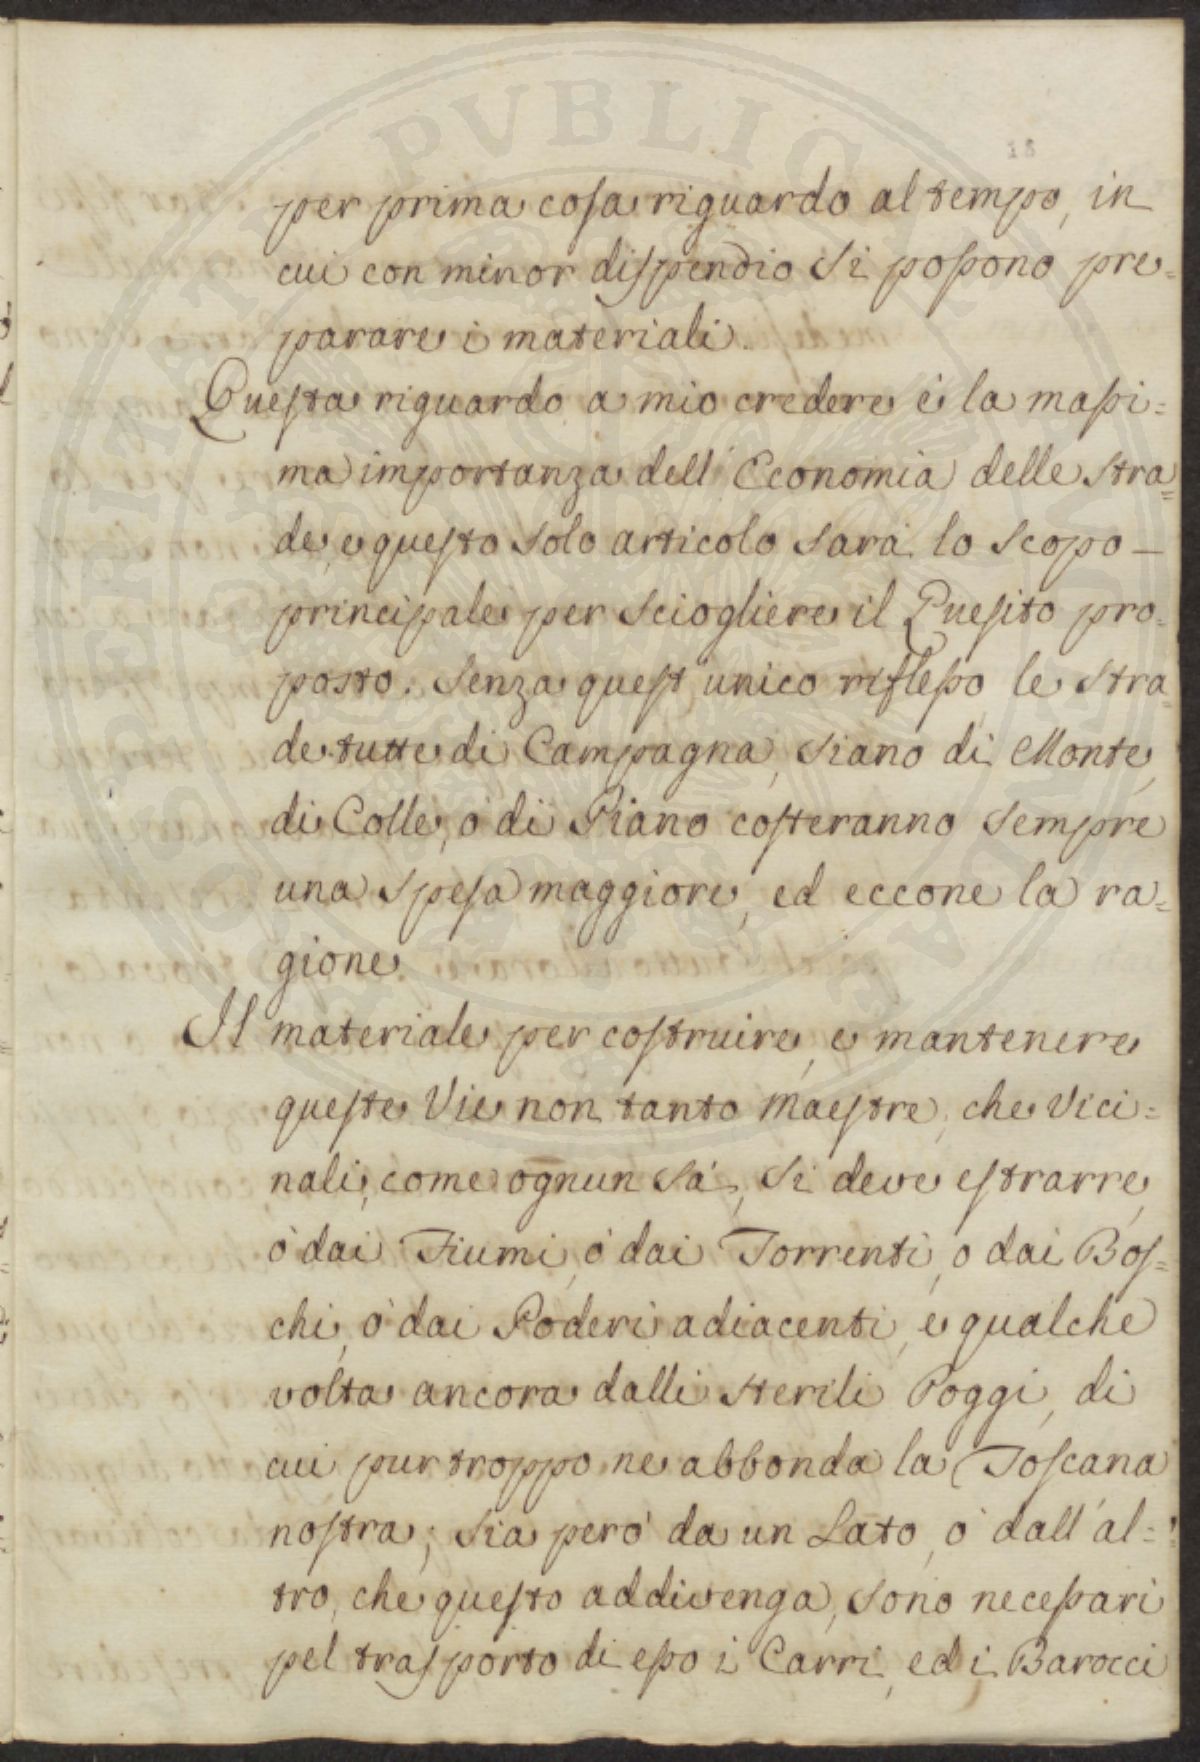 18
per prima cosa riguardo al tempo, in
cui con minor dispendio si possono pre=
parare i materiali.
Questa riguardo a mio credere è la massi=
ma importanza dell'Economia delle Stra=
de, e questo solo articolo sarà lo scopo —
principale per sciogliere il Quesito pro=
posto. Senza quest'unico riflesso, le Stra=
de tutte di Campagna, siano di Monte,
di Colle, ò di Piano costeranno sempre
una spesa maggiore, ed eccone la ra=
gione.
Il materiale per costruire, e mantenere
queste Vie non tanto Maestre, che Vici=
nali, come ognun sà, si deve estrarre,
ò dai Fiumi, ò dai Torrenti, o dai Bos=
chi, ò dai Poderi adiacenti, e qualche
volta ancora dalli sterili Poggi, di
cui pur troppo ne abbonda la Toscana
nostra; sia però da un Lato, ò dall'al=
tro, che questo addivenga, sono necessari
pel trasporto di esso i Carri, ed i Barocci